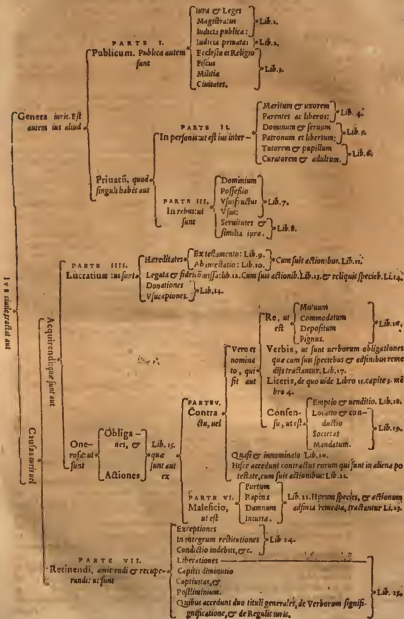 Ius ciuile tractat aut
Genera iuris. Est
autem ius aliud
PARTE I.
Publicum. Publica autem
sunt
Iura & Leges
Magistratus
Iudicia publica:
Lib. 1.
Iudicia priuata:
Lib. 2.
Ecclesia et Religio
Fiscus
Militia
Ciuitates.
Lib. 3.
Priuatũ, quod
singuli habẽt aut
PARTE II.
In personis: ut est ius inter
Maritum & uxorem
Parentes ac liberos:
Lib. 4.
Dominum & seruum
Patronum et libertum;
Lib. 5.
Tutorem & pupillum
Curatorem & adultum.
Lib. 6.
PARTE III.
In rebus: ut
sunt
Dominium
Possessio
Vsusfructus
Vsus:
Lib. 7.
Seruitutes &
similia iura.
Lib. 8.
Causas iuris uel
Acquirendi: quæ sunt aut
PARTE IIII.
Lucratiuæ: ut sunt
Hæreditates
Ex testamento: Lib. 9.
Ab intestato: Lib. 10.
Cum suis actionibus. Lib. 11.
Legata & fideicõmissa: lib. 12. Cum suis actionib. Lib. 13. & reliquis specieb. Li. 14.
Donationes
Vsucapiones.
Lib. 14.
Onerosæ: ut
sunt
Obligationes, &
Actiones
Lib. 15.
quæ
sunt aut
ex
PARTE V.
Contractu, uel
Vero et
nominato, qui
fit aut
Re, ut
est
Mutuum
Commodatum
Depositum
Pignus.
Lib. 16.
Verbis, ut sunt uerborum obligationes
quæ cum suis speciebus & adfinibus remedijs tractantur. Lib. 17.
Literis, de quo uide Libro 15. capite 2. mẽbro 4.
Consensu, ut est
Emptio & uenditio. Lib. 18.
Locatio & conductio
Societas
Mandatum.
Lib. 19.
Quasi & innominato Lib. 20.
Hisce accedunt contractus eorum qui sunt in aliena potestate, cum suis actionibus: Lib. 21.
PARTE VI.
Maleficio,
ut est
Furtum
Rapina
Damnum
Iniuria.
Lib. 22. Horum species, & actionum
adfinia remedia, tractantur Li. 23.
PARTE VII.
Retinendi, amittendi & recuperandi: ut sunt
Exceptiones
In integrum restitutiones
Condictio indebiti, &c.
Lib. 24.
Liberationes
Capitis diminutio
Captiuitas, &
Postliminium.
Quibus accedunt duo tituli generales, de Verborum significatione, & de Regulis iuris.
Lib. 25.